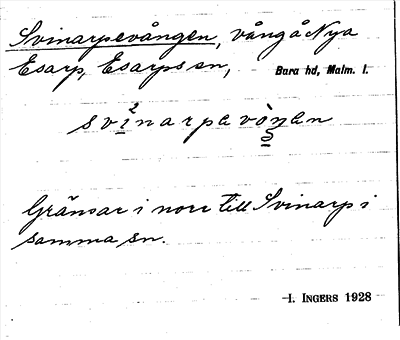 Svinarpsvången, vång å Nya
Esarp, Esarps sn, Bara hd, Malm. l.
Gränsar i norr till Svinarp i
samma sn.
I. INGERS 1928